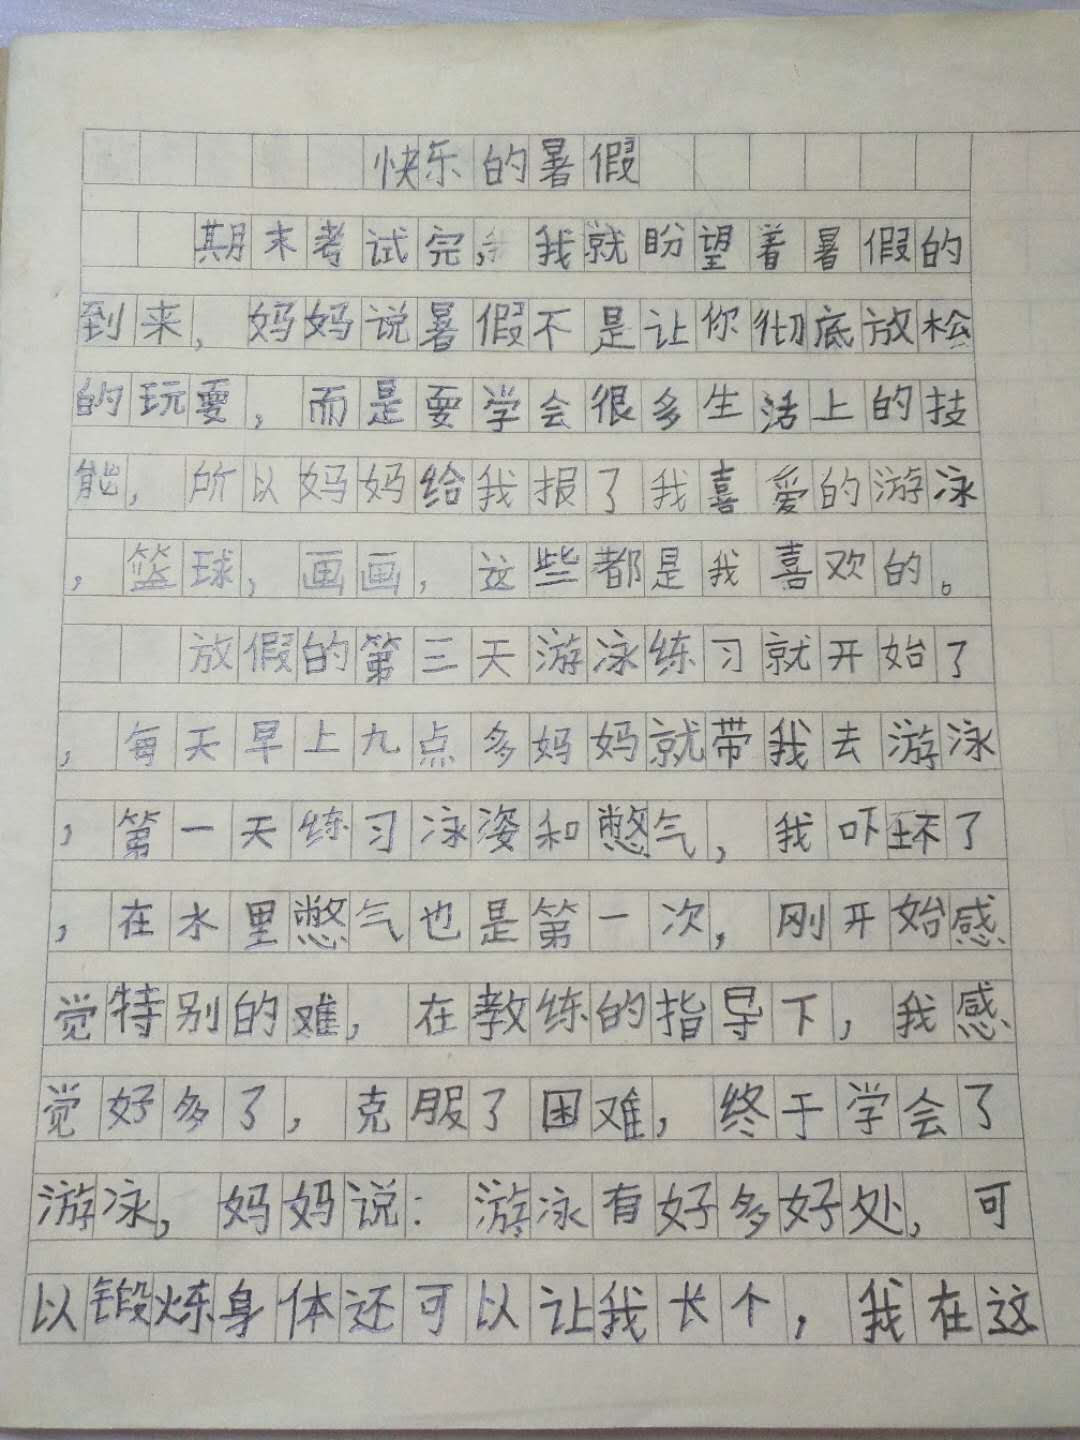 快乐的暑假
期末考试完,我就盼望着暑假的
到来,妈妈说暑假不是让你彻底放松
的玩耍,而是要学会很多生活上的技
能,所以妈妈给我报了我喜爱的游泳
,篮球,画画,这些都是我喜欢的。
放假的第三天游泳练习就开始了
,每天早上九点多妈妈就带我去游泳
,第一天练习泳姿和憋气,我吓坏了
,在水里憋气也是第一次,刚开始感
觉特别的难,在教练的指导下,我感
觉好多了,克服了困难,终于学会了
游泳,妈妈说:游泳有好多好处,可
以锻炼身体还可以让我长个,我在这